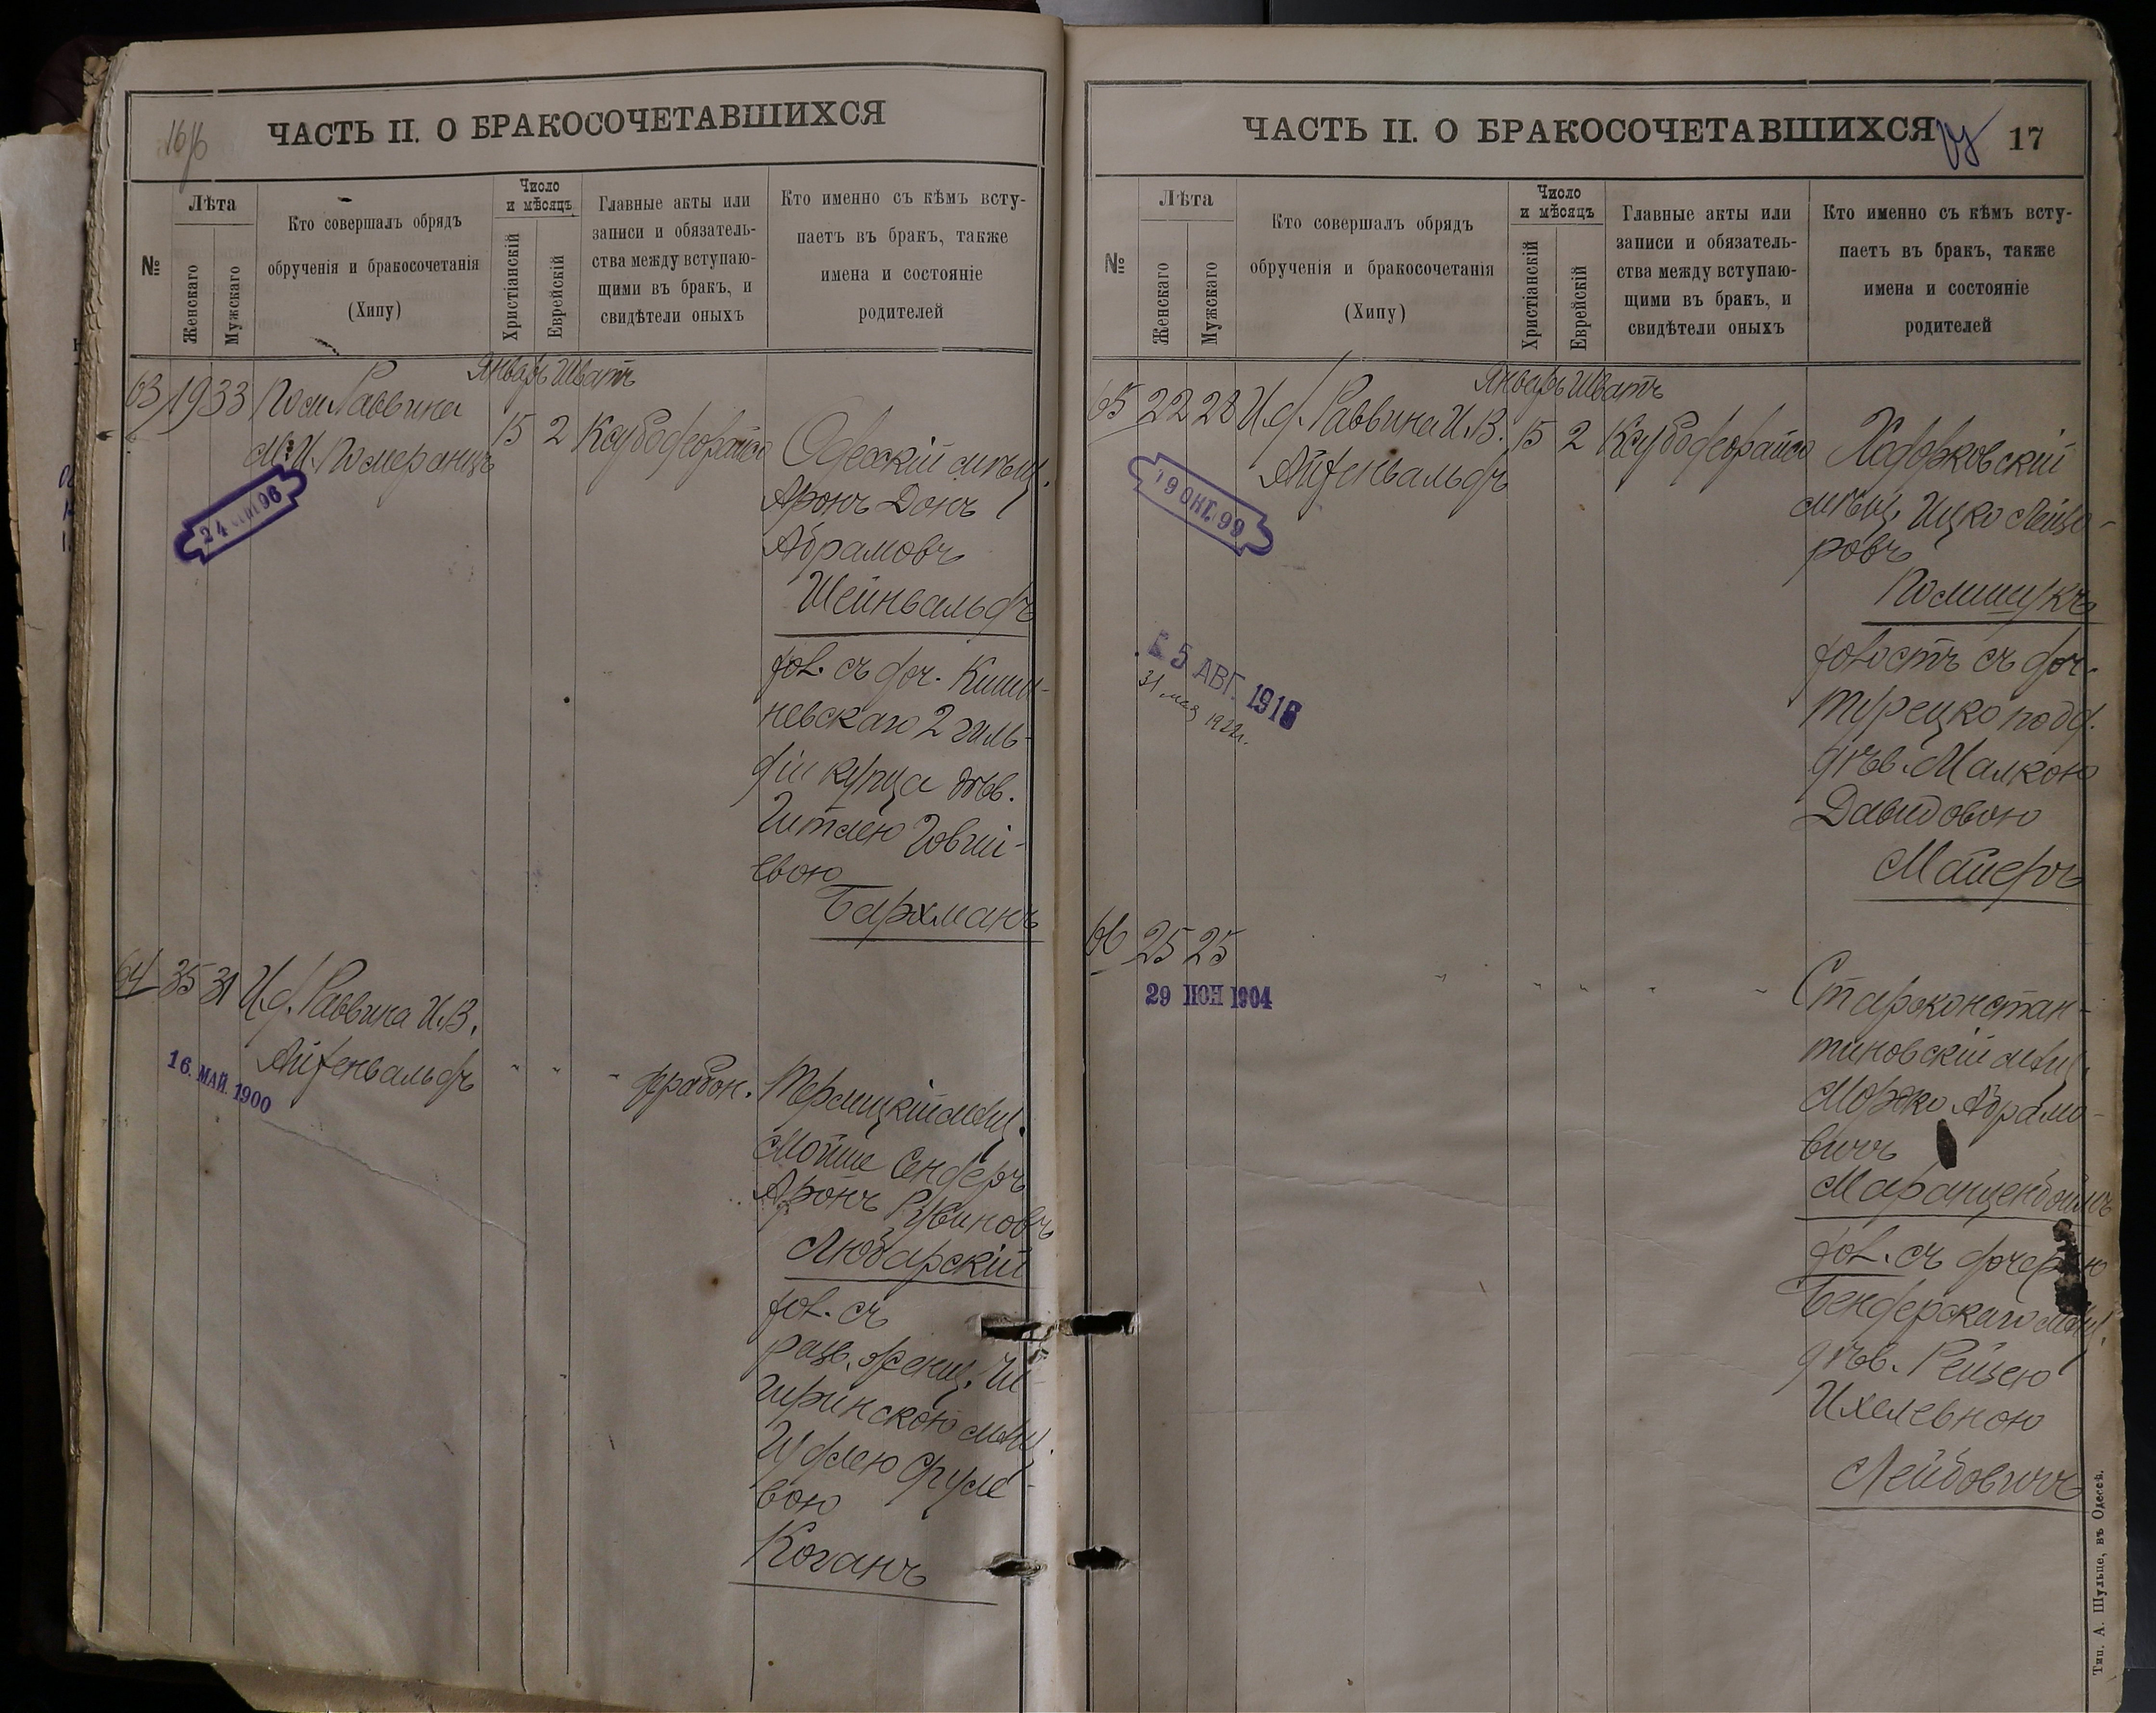 ЧАСТЬ II. О БРАКОСОЧЕТАВШИХСЯ
№
Лѣта
Женскаго
Мужскаго
Кто совершалъ обрядъ
обрученія и бракосочетанія
(Хипу)
Число
и мѣсяцъ
Христіанскій
Еврейскій
Главные акты или
записи и обязатель-
ства между вступаю-
щими въ бракъ, и
свидѣтели оныхъ
Кто именно съ кѣмъ всту-
паетъ въ бракъ, также
имена и состояніе
родителей
Январь Шватъ
63 19 33 Пом. Раввина
М. И. Померанцъ
15 2 Ксубо дорайсо
Одесскій мѣщ.
Аронъ Донъ
Абрамовъ
Шейнвальдъ
хол. съ доч. Киши-
невскаго 2 гиль-
діи купца дѣв.
Гитлею Говши-
евою
Бархманъ
64 35 31 И. д. Раввина И. В.
Айзенвальдъ
16. МАЙ. 1900
" " "
Мойше Сендеръ
Аронъ Рувиновъ
Любарскій
хол. съ
разв. женщ. Чи-
гиринскою мѣщ.
Срулe-
вою
Коганъ
ЧАСТЬ II. О БРАКОСОЧЕТАВШИХСЯ
17
№
Лѣта
Женскаго
Мужскаго
Кто совершалъ обрядъ
обрученія и бракосочетанія
(Хипу)
Число
и мѣсяцъ
Христіанскій
Еврейскій
Главные акты или
записи и обязатель-
ства между вступаю-
щими въ бракъ, и
свидѣтели оныхъ
Кто именно съ кѣмъ всту-
паетъ въ бракъ, также
имена и состояніе
родителей
Январь Шватъ
65 22 28 И. д. Раввина И. В.
Айзенвальдъ
15 2 Ксубо дорайсо
19 ОКТ. 99
5 АВГ. 1916
31 мая 1922г.
Ходорковскій
мѣщ. Ицко Лейзо-
ровъ
Полищукъ
холостъ съ доч.
Турецко подд.
дѣв. Малкою
Давидовою
Майеръ
66 25 25
29 ІЮН 1904
" " " " "
Староконстан-
тиновскій мѣщ.
Мошко Абрамо-
вичъ
Маранценбоймъ
хол. съ дочерью
Бендерскаго мѣщ.
дѣв. Рейзею
Ихелевною
Лейбовичъ
Тип. А. Шульце, въ Одессѣ.